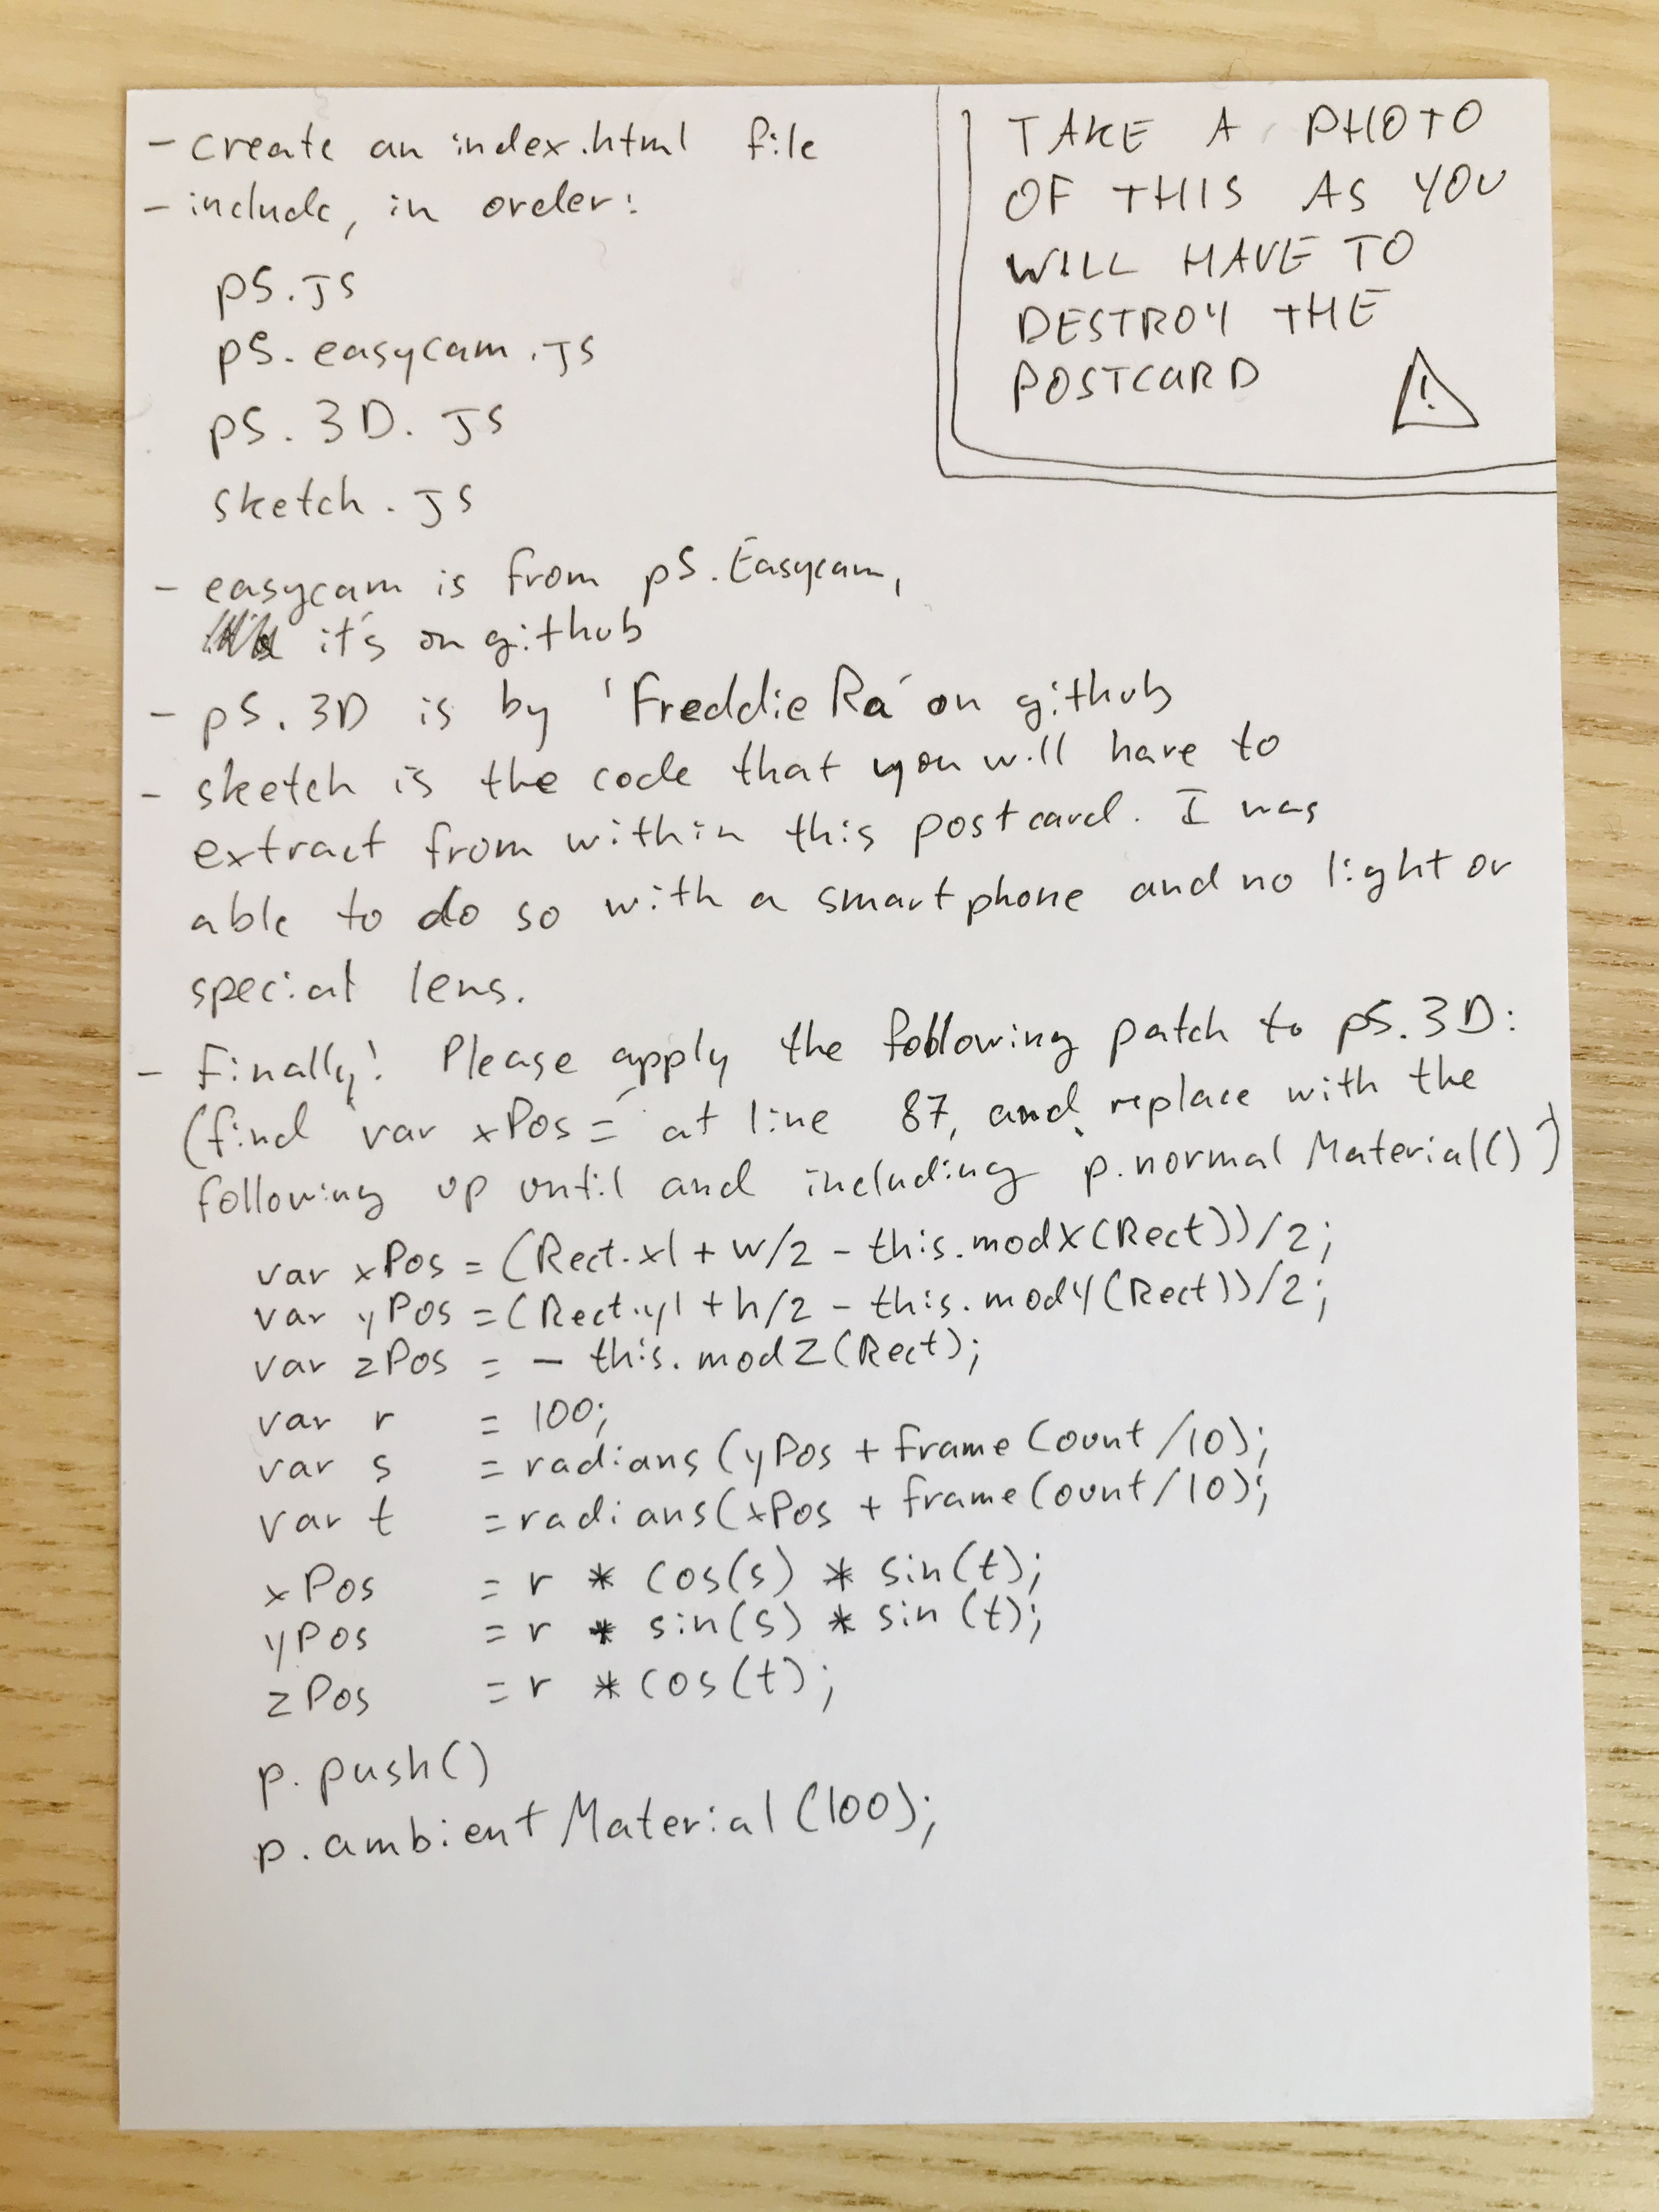 - create an index.html file
- include, in order:
p5.js
p5.easycam.js
p5.3D.js
sketch.js
TAKE A PHOTO
OF THIS AS YOU
WILL HAVE TO
DESTROY THE
POSTCARD
!
- easycam is from p5.Easycam,
it's on github
- p5.3D is by 'FreddieRa' on github
- sketch is the code that you will have to
extract from within this postcard. I was
able to do so with a smartphone and no light or
special lens.
- Finally! Please apply the following patch to p5.3D:
(find 'var xPos=' at line 87, and replace with the
following up until and including p.normalMaterial())
var xPos = (Rect.x1 + w/2 - this.modX(Rect))/2;
var yPos = (Rect.y1 + h/2 - this.modY(Rect))/2;
var zPos = - this.modZ(Rect);
var r = 100;
var s = radians(yPos + frameCount/10);
var t = radians(xPos + frameCount/10);
xPos = r * cos(s) * sin(t);
yPos = r * sin(s) * sin(t);
zPos = r * cos(t);
p.push()
p.ambientMaterial(100);